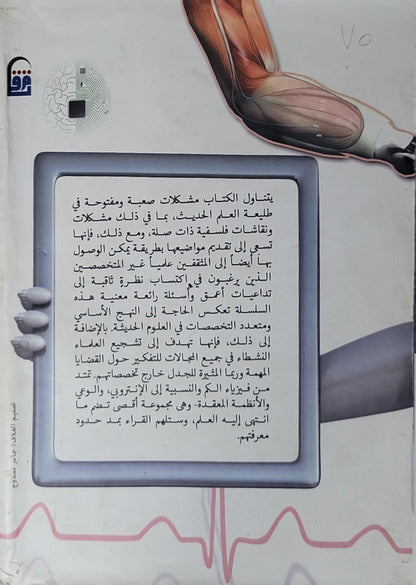 ٧٥
شرق
يتناول الكتاب مشكلات صعبة ومفتوحة في
طليعة العلم الحديث، بما في ذلك مشكلات
ونقاشات فلسفية ذات صلة، ومع ذلك، فإنها
تسعى إلى تقديم مواضيعها بطريقة يمكن الوصول
بها أيضاً إلى المثقفين علمياً غير المتخصصين
الذين يرغبون في اكتساب نظرة ثاقبة إلى
تداعيات أعمق وأسئلة رائعة معنية هذه
السلسلة تعكس الحاجة إلى النهج الأساسي
ومتعدد التخصصات في العلوم الحديثة. بالإضافة
إلى ذلك، فإنها تهدف إلى تشجيع العلماء
النشطاء في جميع المجالات للتفكير حول القضايا
المهمة وربما المثيرة للجدل خارج تخصصاتهم. تمتد
من فيزياء الكم والنسبية إلى الإنتروبي، والوعي
والأنظمة المعقدة- وهى مجموعة أقصى تضم ما
انتهى إليه العلم، وستلهم القراء بمد حدود
معرفتهم.
تصميم الغلاف: جابر ممدوح